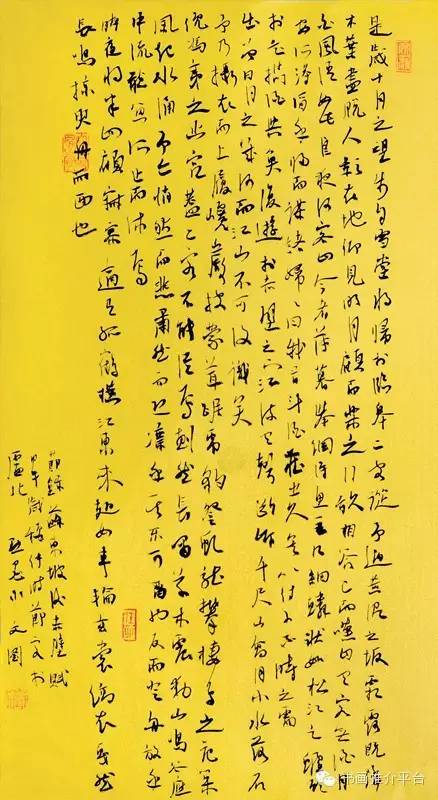 是歲十月之望步自雪堂將歸於臨皋二客從予過黃泥之坂霜露既降
木葉盡脫人影在地仰見明月顧而樂之行歌相答已而嘆曰有客無酒月
白風清如此良夜何客曰今者薄暮舉網得魚巨口細鱗狀如松江之鱸顧
安所得酒乎歸而謀諸婦婦曰我有斗酒藏之久矣以待子不時之需
於是攜酒與魚復遊於赤壁之下江流有聲斷岸千尺山高月小水落石
出曾日月之幾何而江山不可復識矣
予乃攝衣而上履巉巖披蒙茸踞虎豹登虬龍攀棲鶻之危巢
俯馮夷之幽宮蓋二客不能從焉劃然長嘯草木震動山鳴谷應
風起水涌予亦悄然而悲肅然而恐凜乎其不可留也反而登舟放乎
中流聽其所止而休焉
時夜將半四顧寂寥適有孤鶴橫江東來翅如車輪玄裳縞衣戛然
長鳴掠予舟而西也
節錄蘇東坡後赤壁賦
甲午歲
文國
书画推介平台